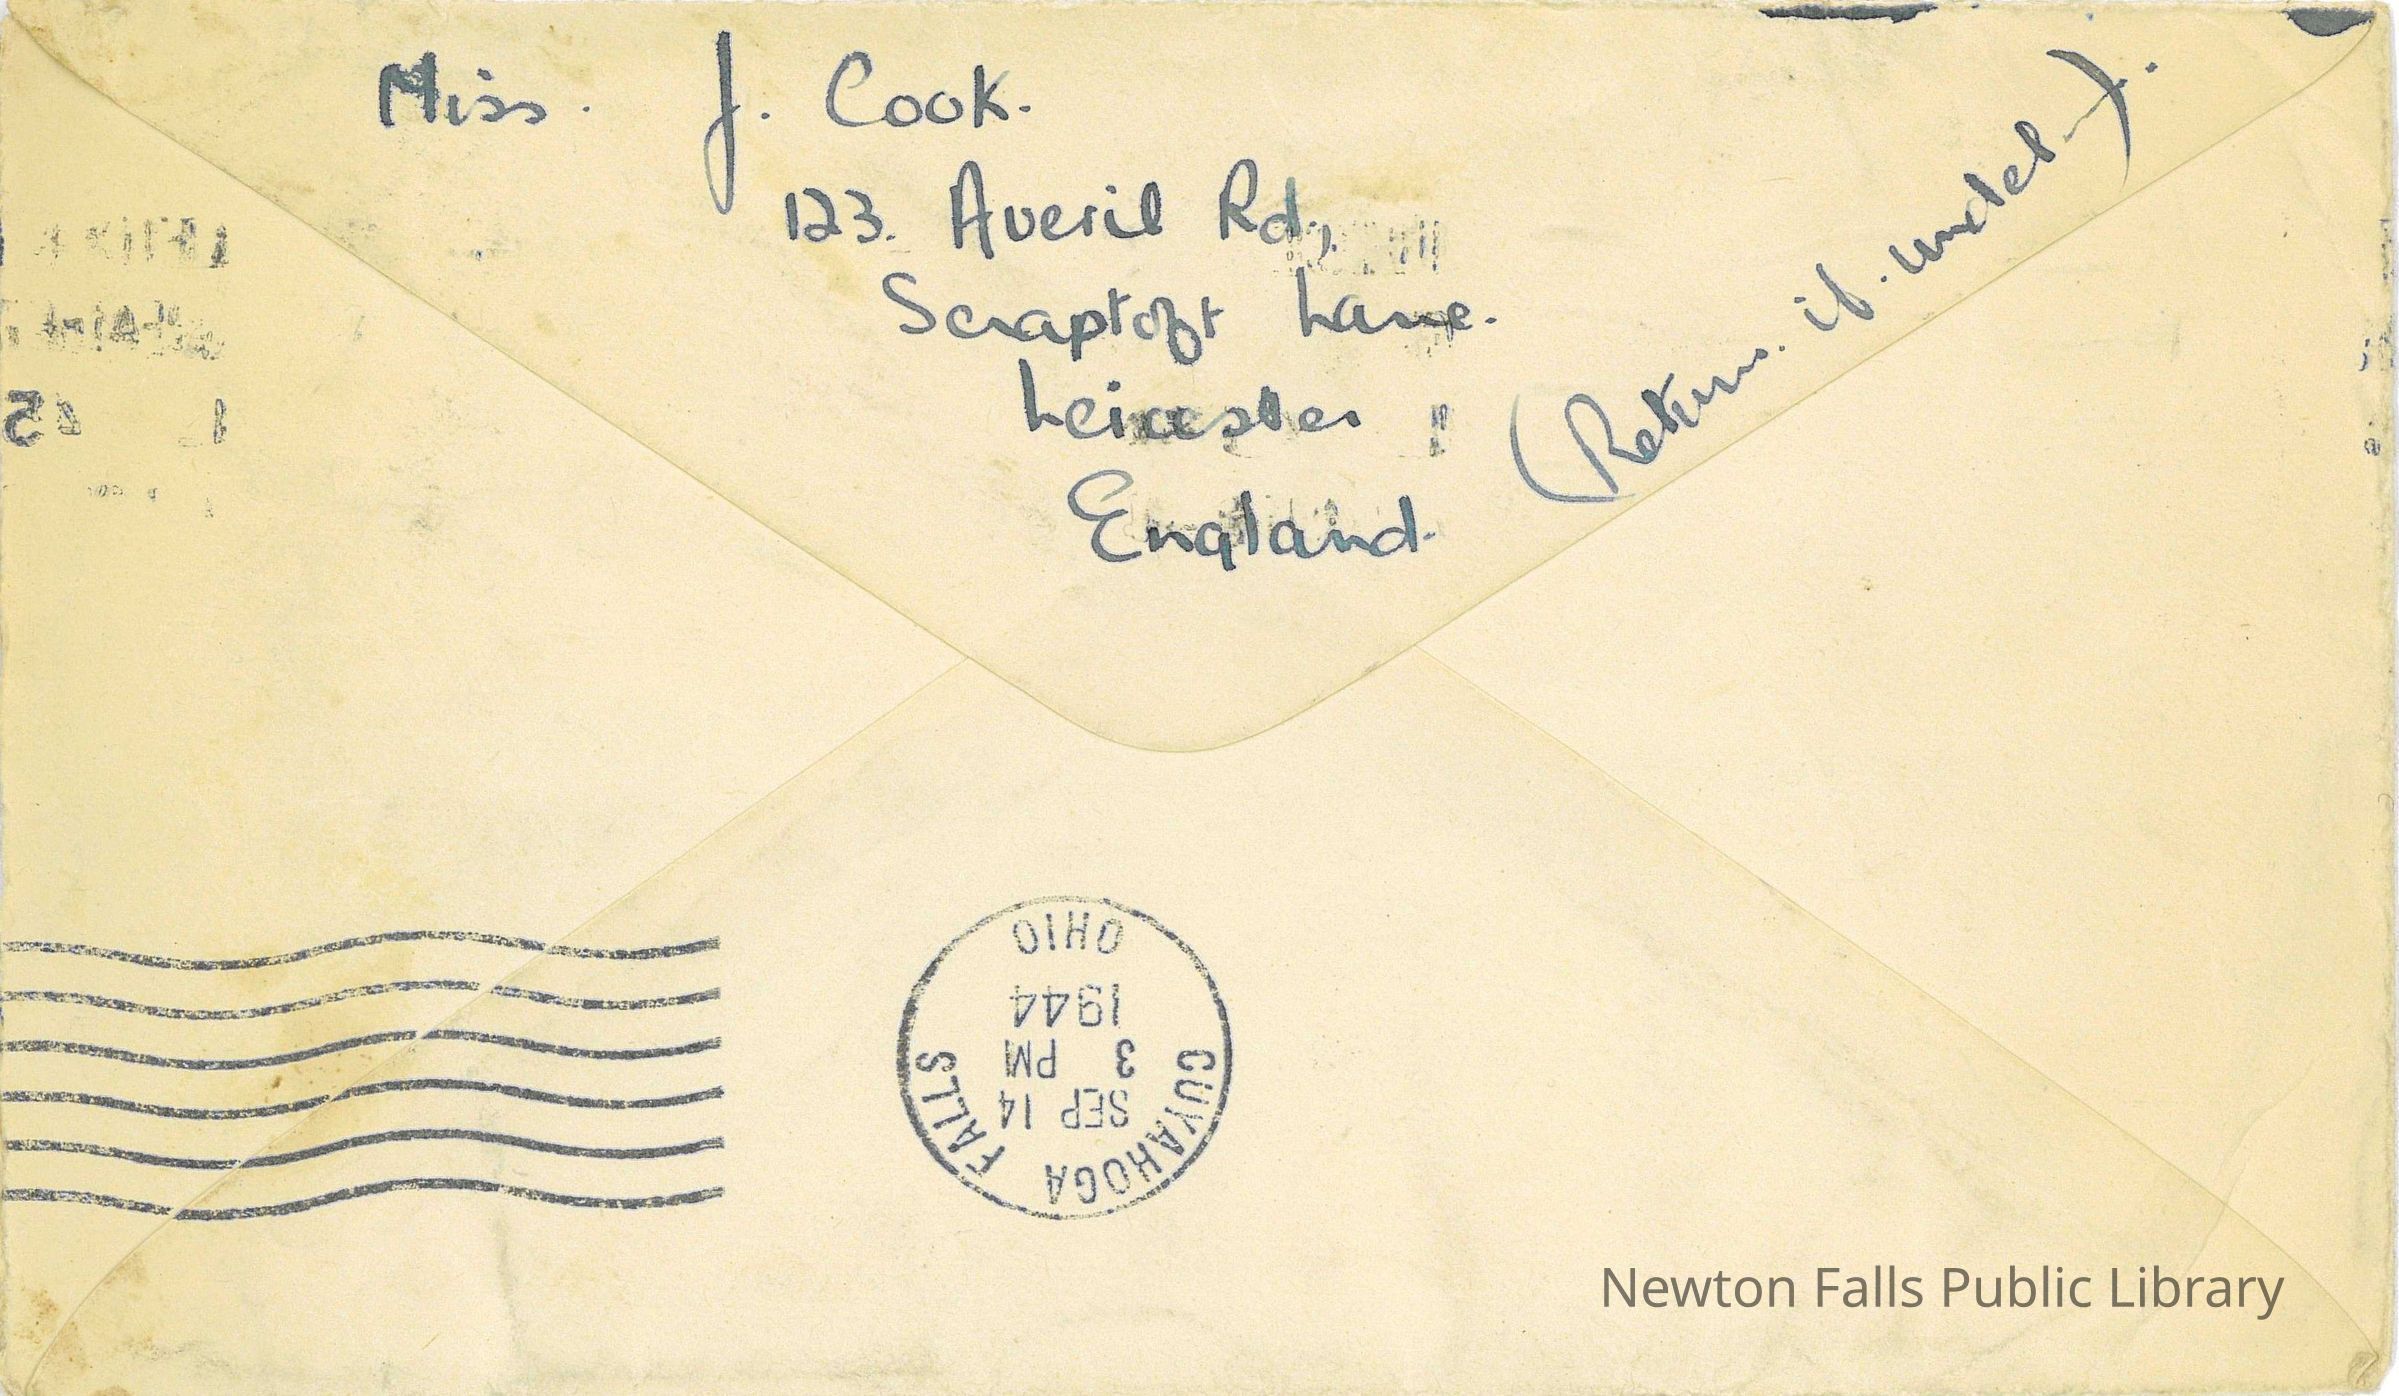 Miss. J. Cook.
123. Averil Rd,
Scraptoft Lane.
Leicester
England.
(Return. if. undel—).
CUYAHOGA FALLS
SEP 14
3 PM
1944
OHIO
Newton Falls Public Library